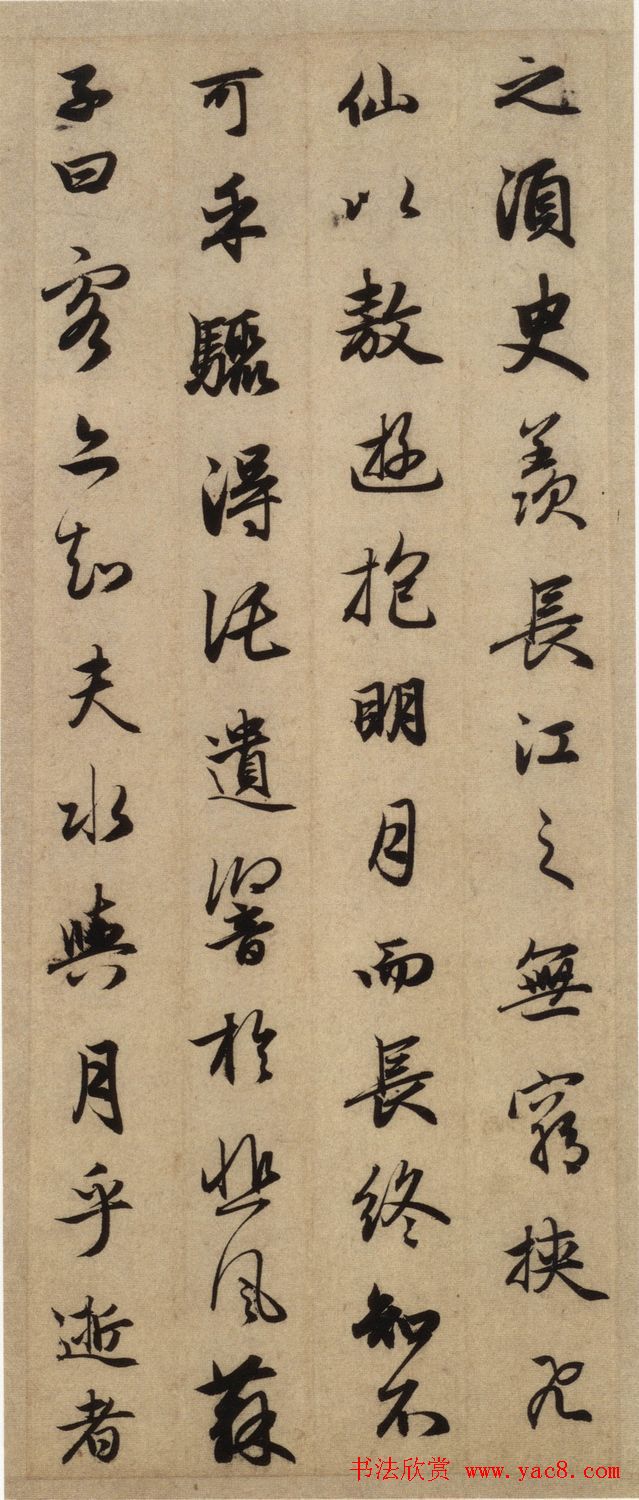 之須臾羨長江之無窮挾飛
仙以敖遊抱明月而長終知不
可乎驟得託遺響於悲風蘇
子曰客亦知夫水與月乎逝者
书法欣赏 www.yac8.com